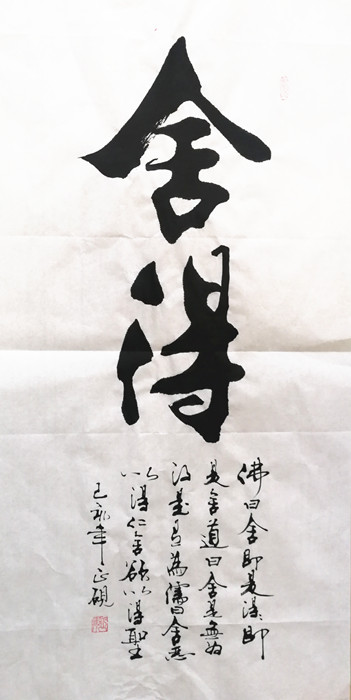 舍得
佛曰舍即是得得即
是舍道曰舍是無為
得是有為儒曰舍惡
以得仁舍欲以得聖
己亥年正硯